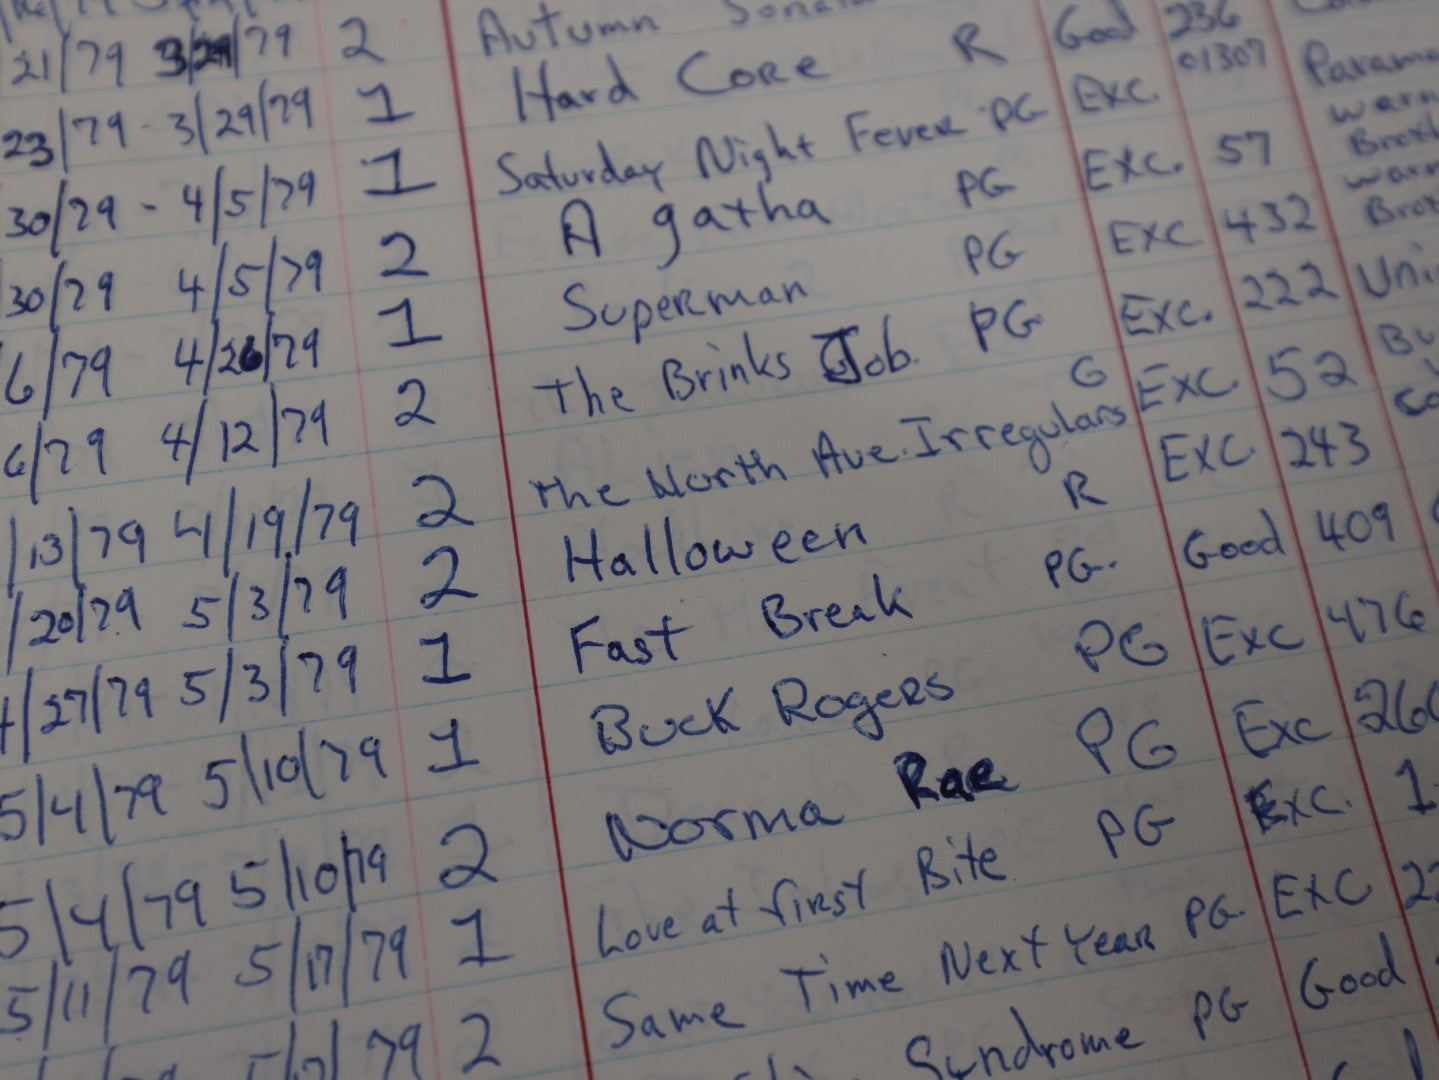 21/79 3/29/79 2 Autumn
23/79 - 3/29/79 1 Hard Core R Good 236
30/79 - 4/5/79 1 Saturday Night Fever PG Exc. 01307 Paramo
30/79 4/5/79 2 Agatha PG Exc. 57 Warn Broth
6/79 4/26/79 1 Superman PG Exc 432 Warn Broth
6/79 4/12/79 2 The Brinks Job. PG Exc. 222 Uni
/13/79 4/19/79 2 The North Ave. Irregulars G Exc. 52 Bu
/20/79 5/3/79 2 Halloween R Exc. 243 Co
4/27/79 5/3/79 1 Fast Break PG. Good 409
5/4/79 5/10/79 1 Buck Rogers PG Exc 476
5/4/79 5/10/79 2 Norma Rae PG Exc 260
5/11/79 5/17/79 1 Love at first Bite PG Exc. 1
79 2 Same Time Next Year PG. Exc 22
Syndrome PG Good